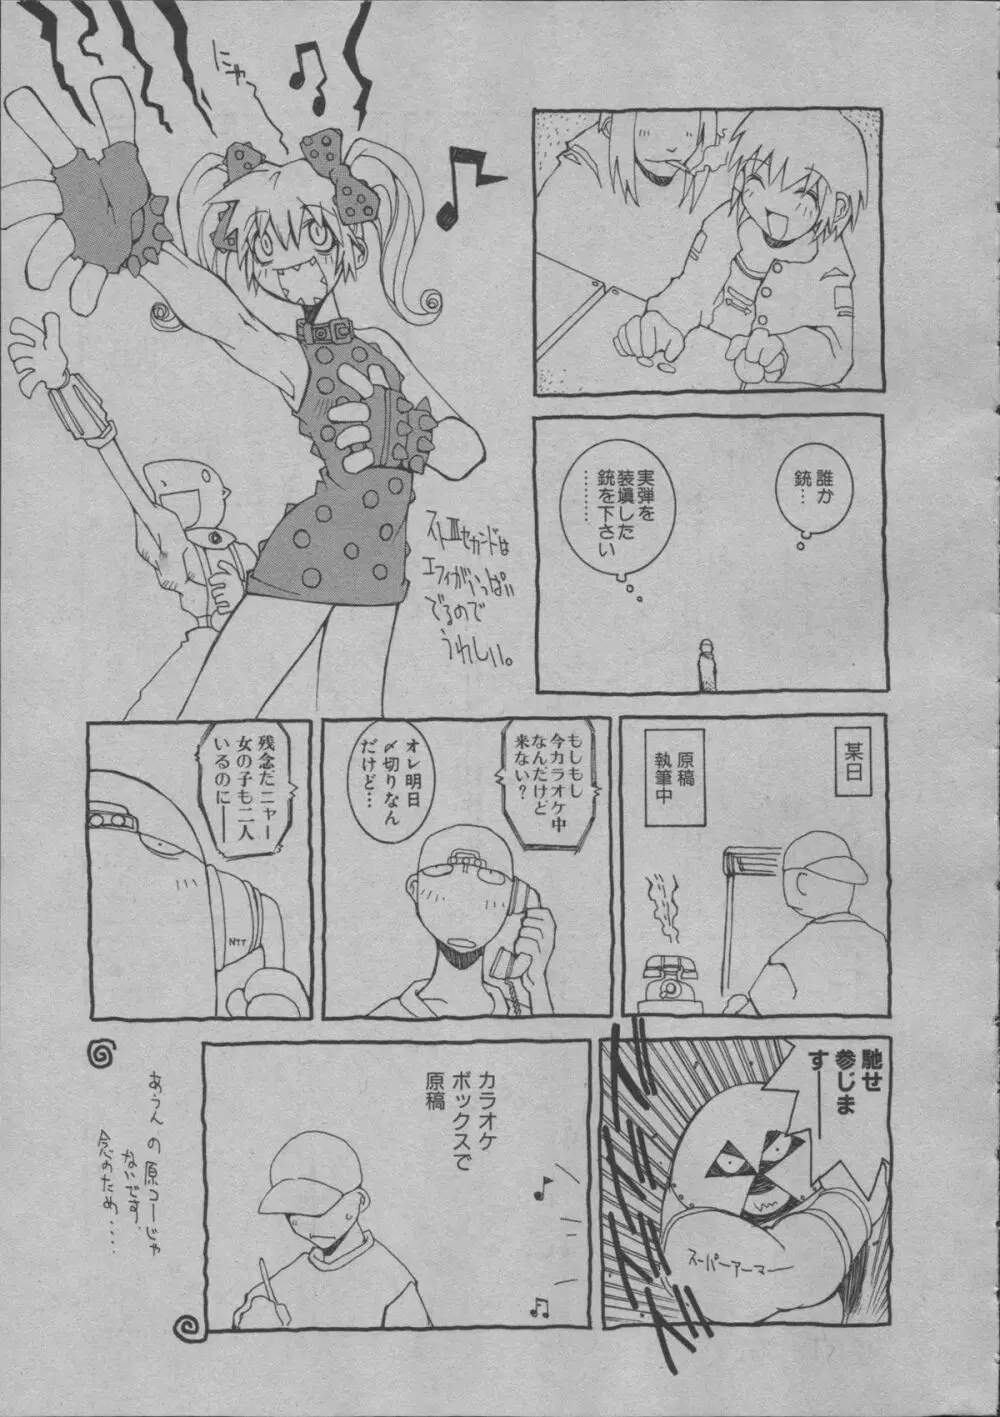 にゃー
誰か
銃…
実弾を
装填した
銃を下さい
………
ストⅢセカンドは
エフィがいっぱい
でるので
うれしい。
某日
原稿
執筆中
もしもし
今カラオケ中
なんだけど
来ない？
オレ明日
〆切りなん
だけど…
残念だニャー
女の子も二人
いるのに――
NTT
馳せ
参じま
す――
スーパーアーマー
ドドドドドドド
カラオケ
ボックスで
原稿
あうんの原コーじゃ
ないです。
念のため…